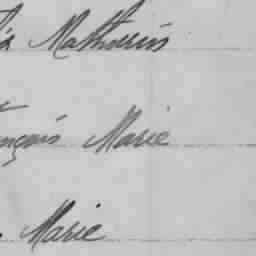 Mathurin
nçois Marie
Marie